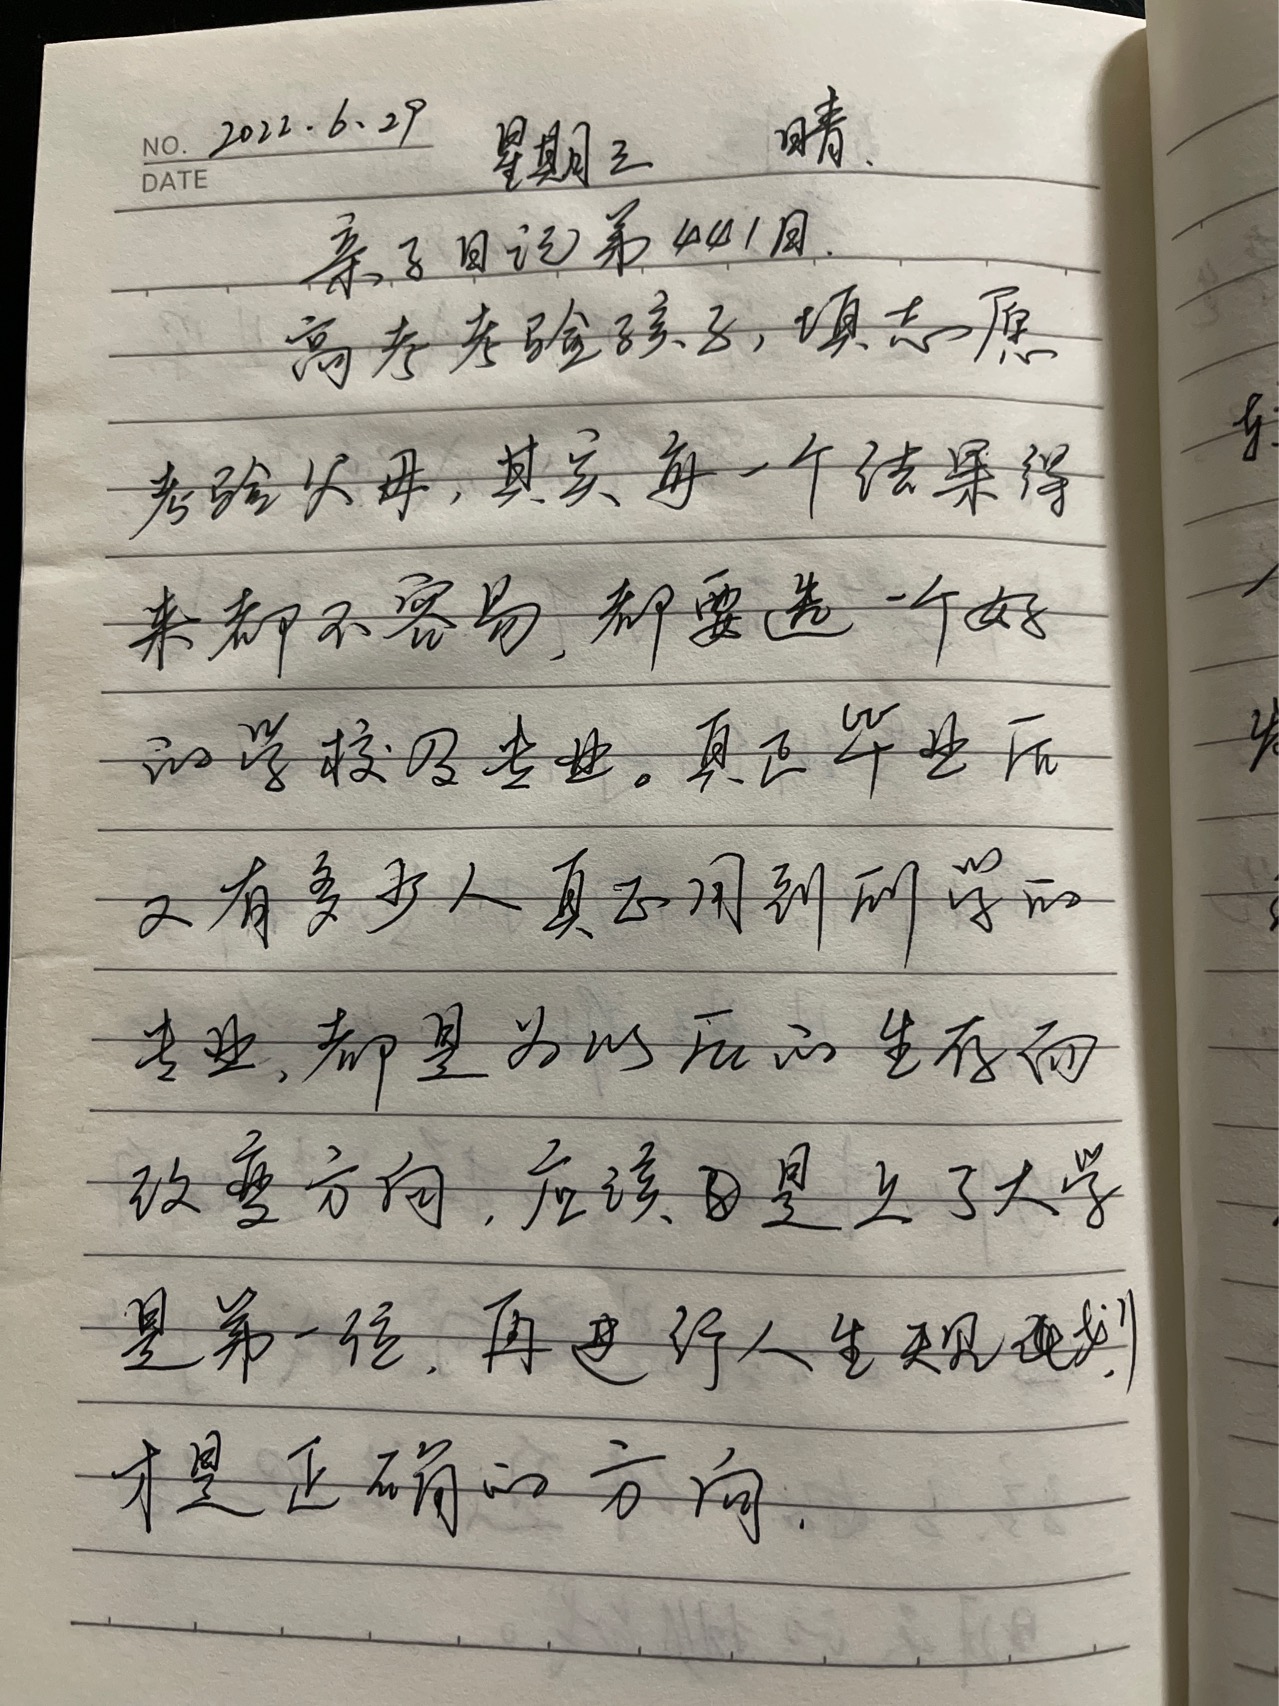 NO. 2022.6.29 星期三 晴.
DATE
亲子日记第441日.
高考考验孩子，填志愿
考验父母，其实每一个结果得
来都不容易，都要选一个好
的学校及专业。真正毕业后
又有多少人真正用到所学的
专业，都是为以后的生存而
改变方向，应该是上了大学
是第一位，再进行人生规划
才是正确的方向.